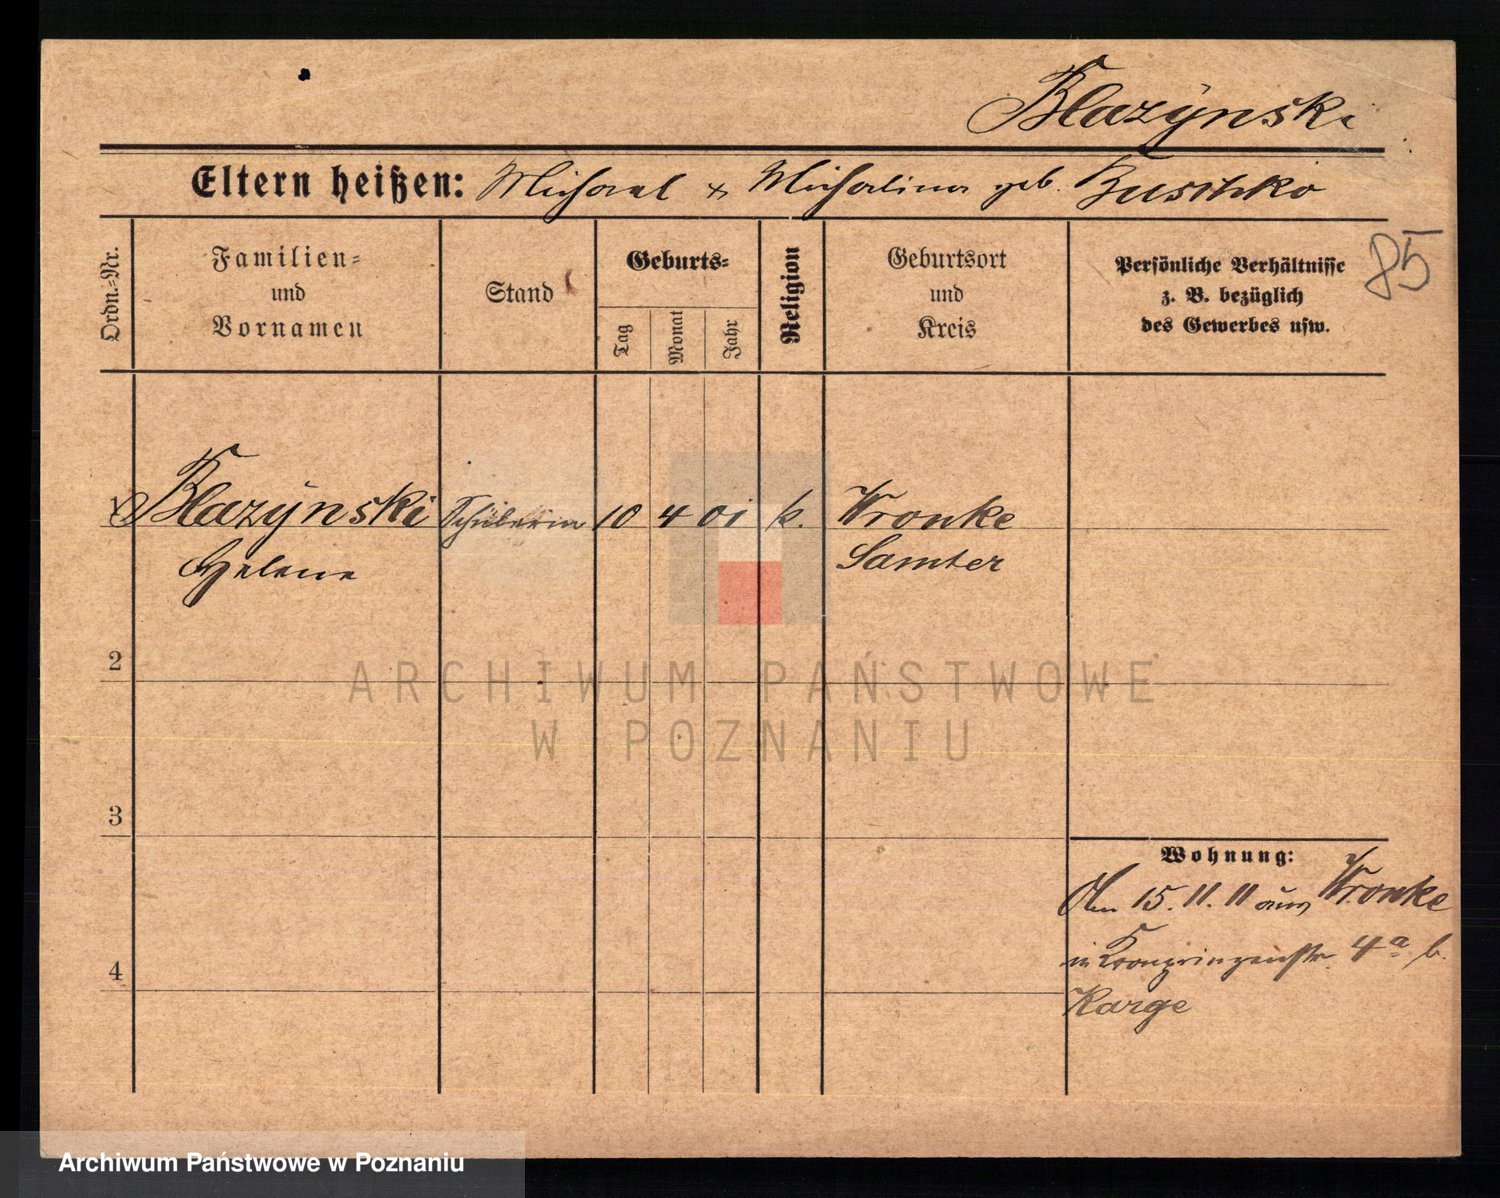 Blazÿnski
Eltern heißen: Michael & Michalina geb. Buschko
85
Ordn.-Nr.
Familien-
und
Vornamen
Stand
Geburts-
Tag
Monat
Jahr
Religion
Geburtsort
und
Kreis
Persönliche Verhältnisse
z. B. bezüglich
des Gewerbes usw.
1 Blazÿnski Schülerin 10 4 01 k. Wronke
Helene Samter
2
3
4
Wohnung:
Am 15. 11. 11 aus Wronke
in Kronprinzenstr. 4a b.
Karge
ARCHIWUM PAŃSTWOWE
W POZNANIU
Archiwum Państwowe w Poznaniu